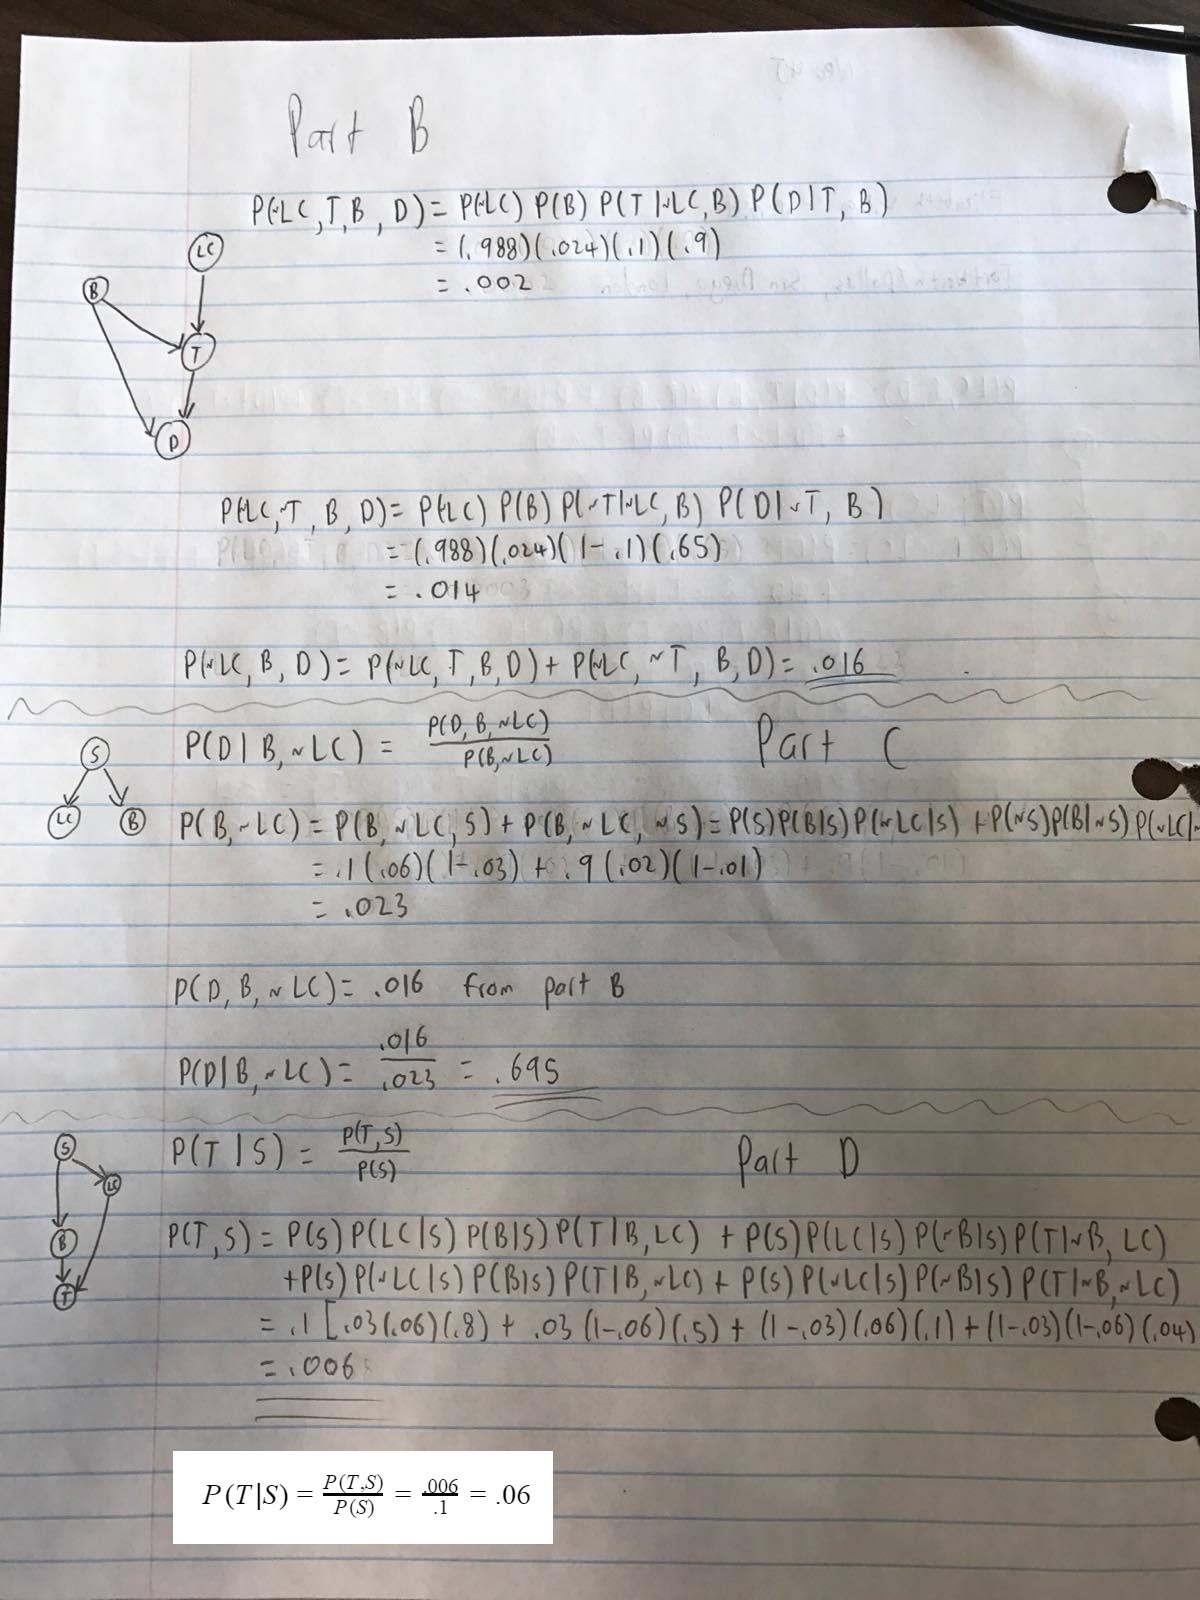 Part B
P(~LC, T, B, D) = P(~LC) P(B) P(T|~LC, B) P(D|T, B)
= (.988)(.024)(.1)(.9)
= .002
LC
B
T
D
P(~LC, ~T, B, D) = P(~LC) P(B) P(~T|~LC, B) P(D|~T, B)
= (.988)(.024)(1-.1)(.65)
= .014
P(~LC, B, D) = P(~LC, T, B, D) + P(~LC, ~T, B, D) = .016
P(D|B, ~LC) = P(D, B, ~LC) / P(B, ~LC) Part C
S
LC B
P(B, ~LC) = P(B, ~LC, S) + P(B, ~LC, ~S) = P(S)P(B|S)P(~LC|S) + P(~S)P(B|~S)P(~LC|~
= .1(.06)(1-.03) + .9(.02)(1-.01)
= .023
P(D, B, ~LC) = .016 from part B
P(D|B, ~LC) = .016 / .023 = .695
P(T|S) = P(T,S) / P(S) Part D
S
LC
B
T
P(T,S) = P(S)P(LC|S)P(B|S)P(T|B, LC) + P(S)P(LC|S)P(~B|S)P(T|~B, LC)
+P(S)P(~LC|S)P(B|S)P(T|B, ~LC) + P(S)P(~LC|S)P(~B|S)P(T|~B, ~LC)
= .1[.03(.06)(.8) + .03(1-.06)(.5) + (1-.03)(.06)(.1) + (1-.03)(1-.06)(.04)
= .006
P(T|S) = P(T,S) / P(S) = .006 / .1 = .06